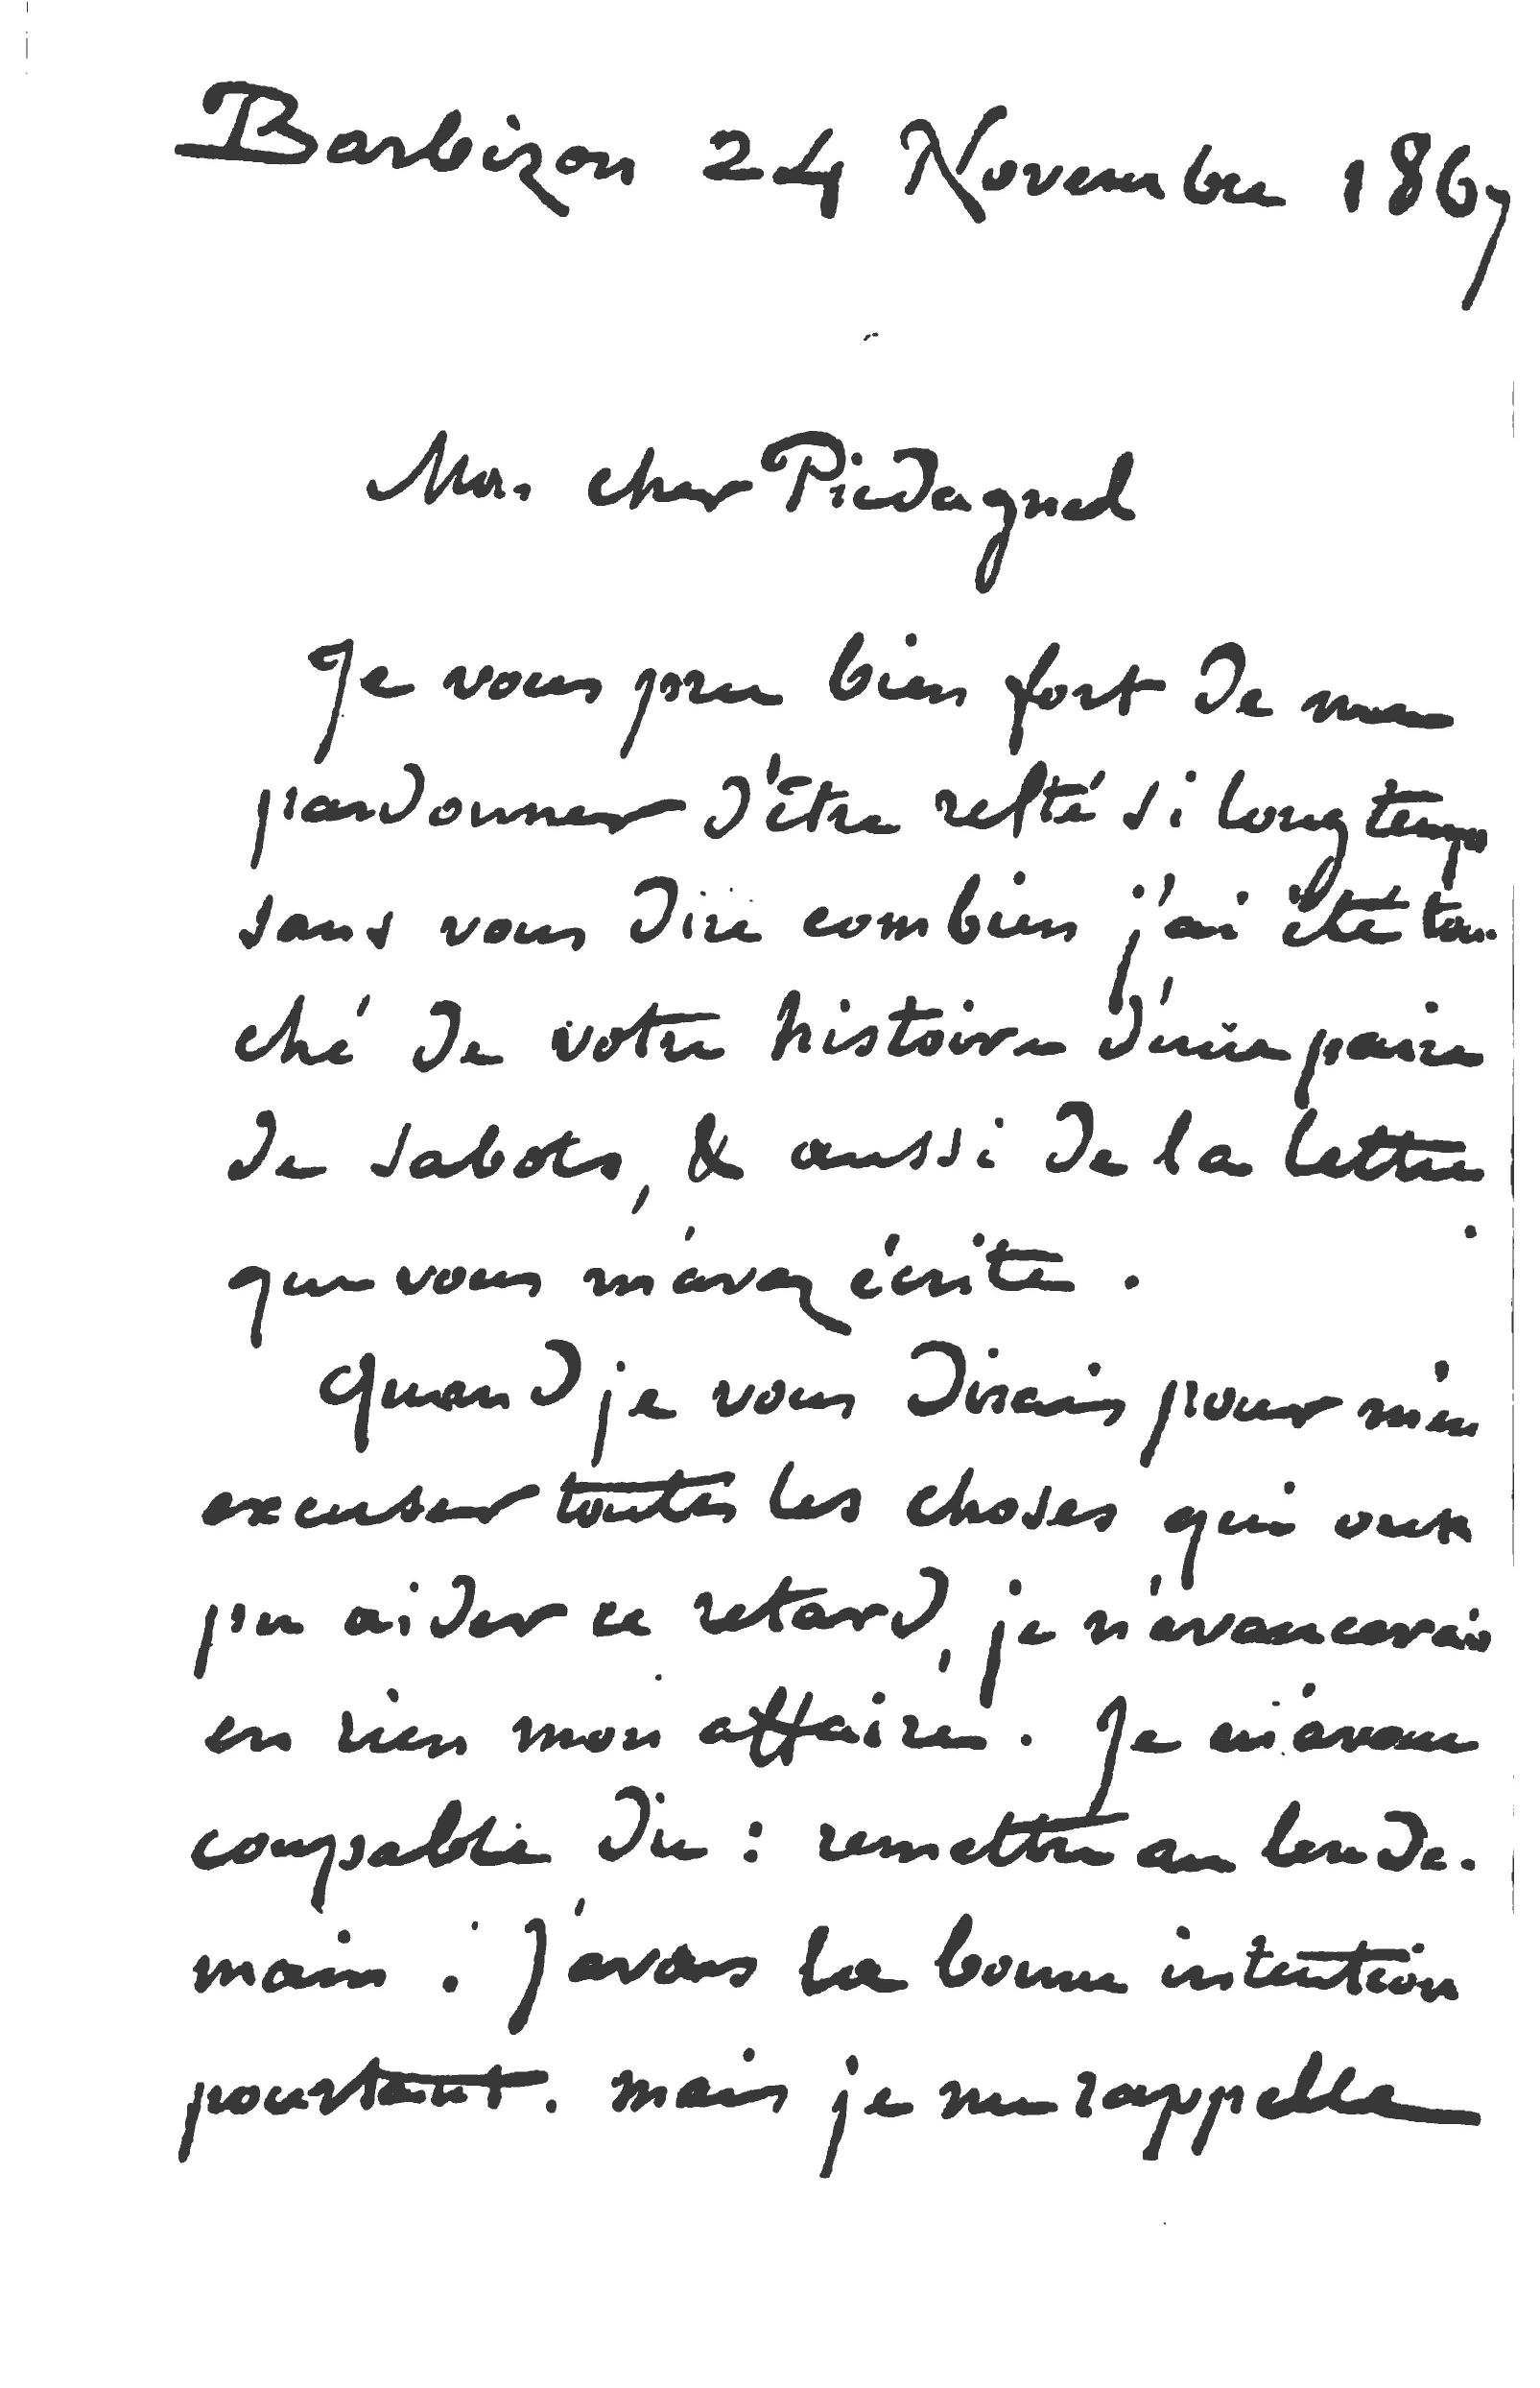 Barbizon 24 Novembre 1867
Mon cher Piedagnel
Je vous prie bien fort de me
pardonner d'être resté si longtemps
sans vous dire combien j'ai été tou-
ché de votre histoire d'une paire
de sabots, & aussi de la lettre
que vous m'avez écrite.
Quand je vous dirais pour m'en
excuser toutes les choses qui ont
pu aider ce retard, je n'avancerais
en rien mon affaire. Je m'avoue
coupable du : remettre au lende-
main. J'avais la bonne intention
pourtant. mais je me rappelle